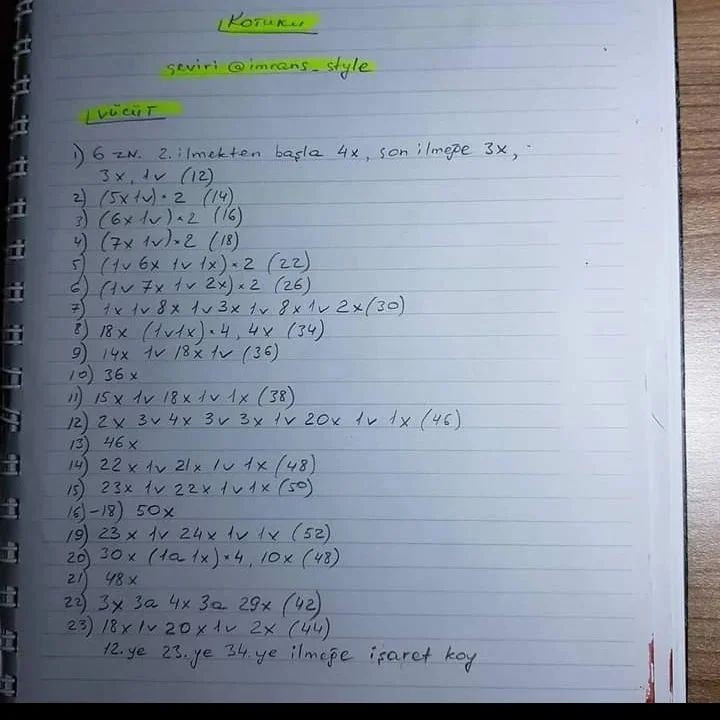 KOTUKU
çeviri @imrans_style
VÜCUT
1) 6 zn. 2. ilmekten başla 4x, son ilmeğe 3x,
3x, 1v (12)
2) (5x 1v)*2 (14)
3) (6x 1v)*2 (16)
4) (7x 1v)*2 (18)
5) (1v 6x 1v 1x)*2 (22)
6) (1v 7x 1v 2x)*2 (26)
7) 1x 1v 8x 1v 3x 1v 8x 1v 2x (30)
8) 18x (1v 1x)*4, 4x (34)
9) 14x 1v 18x 1v (36)
10) 36x
11) 15x 1v 18x 1v 1x (38)
12) 2x 3v 4x 3v 3x 1v 20x 1v 1x (46)
13) 46x
14) 22x 1v 21x 1v 1x (48)
15) 23x 1v 22x 1v 1x (50)
16)-18) 50x
19) 23x 1v 24x 1v 1x (52)
20) 30x (1a 1x)*4, 10x (48)
21) 48x
22) 3x 3a 4x 3a 29x (42)
23) 18x 1v 20x 1v 2x (44)
12.ye 23.ye 34.ye ilmeğe işaret koy